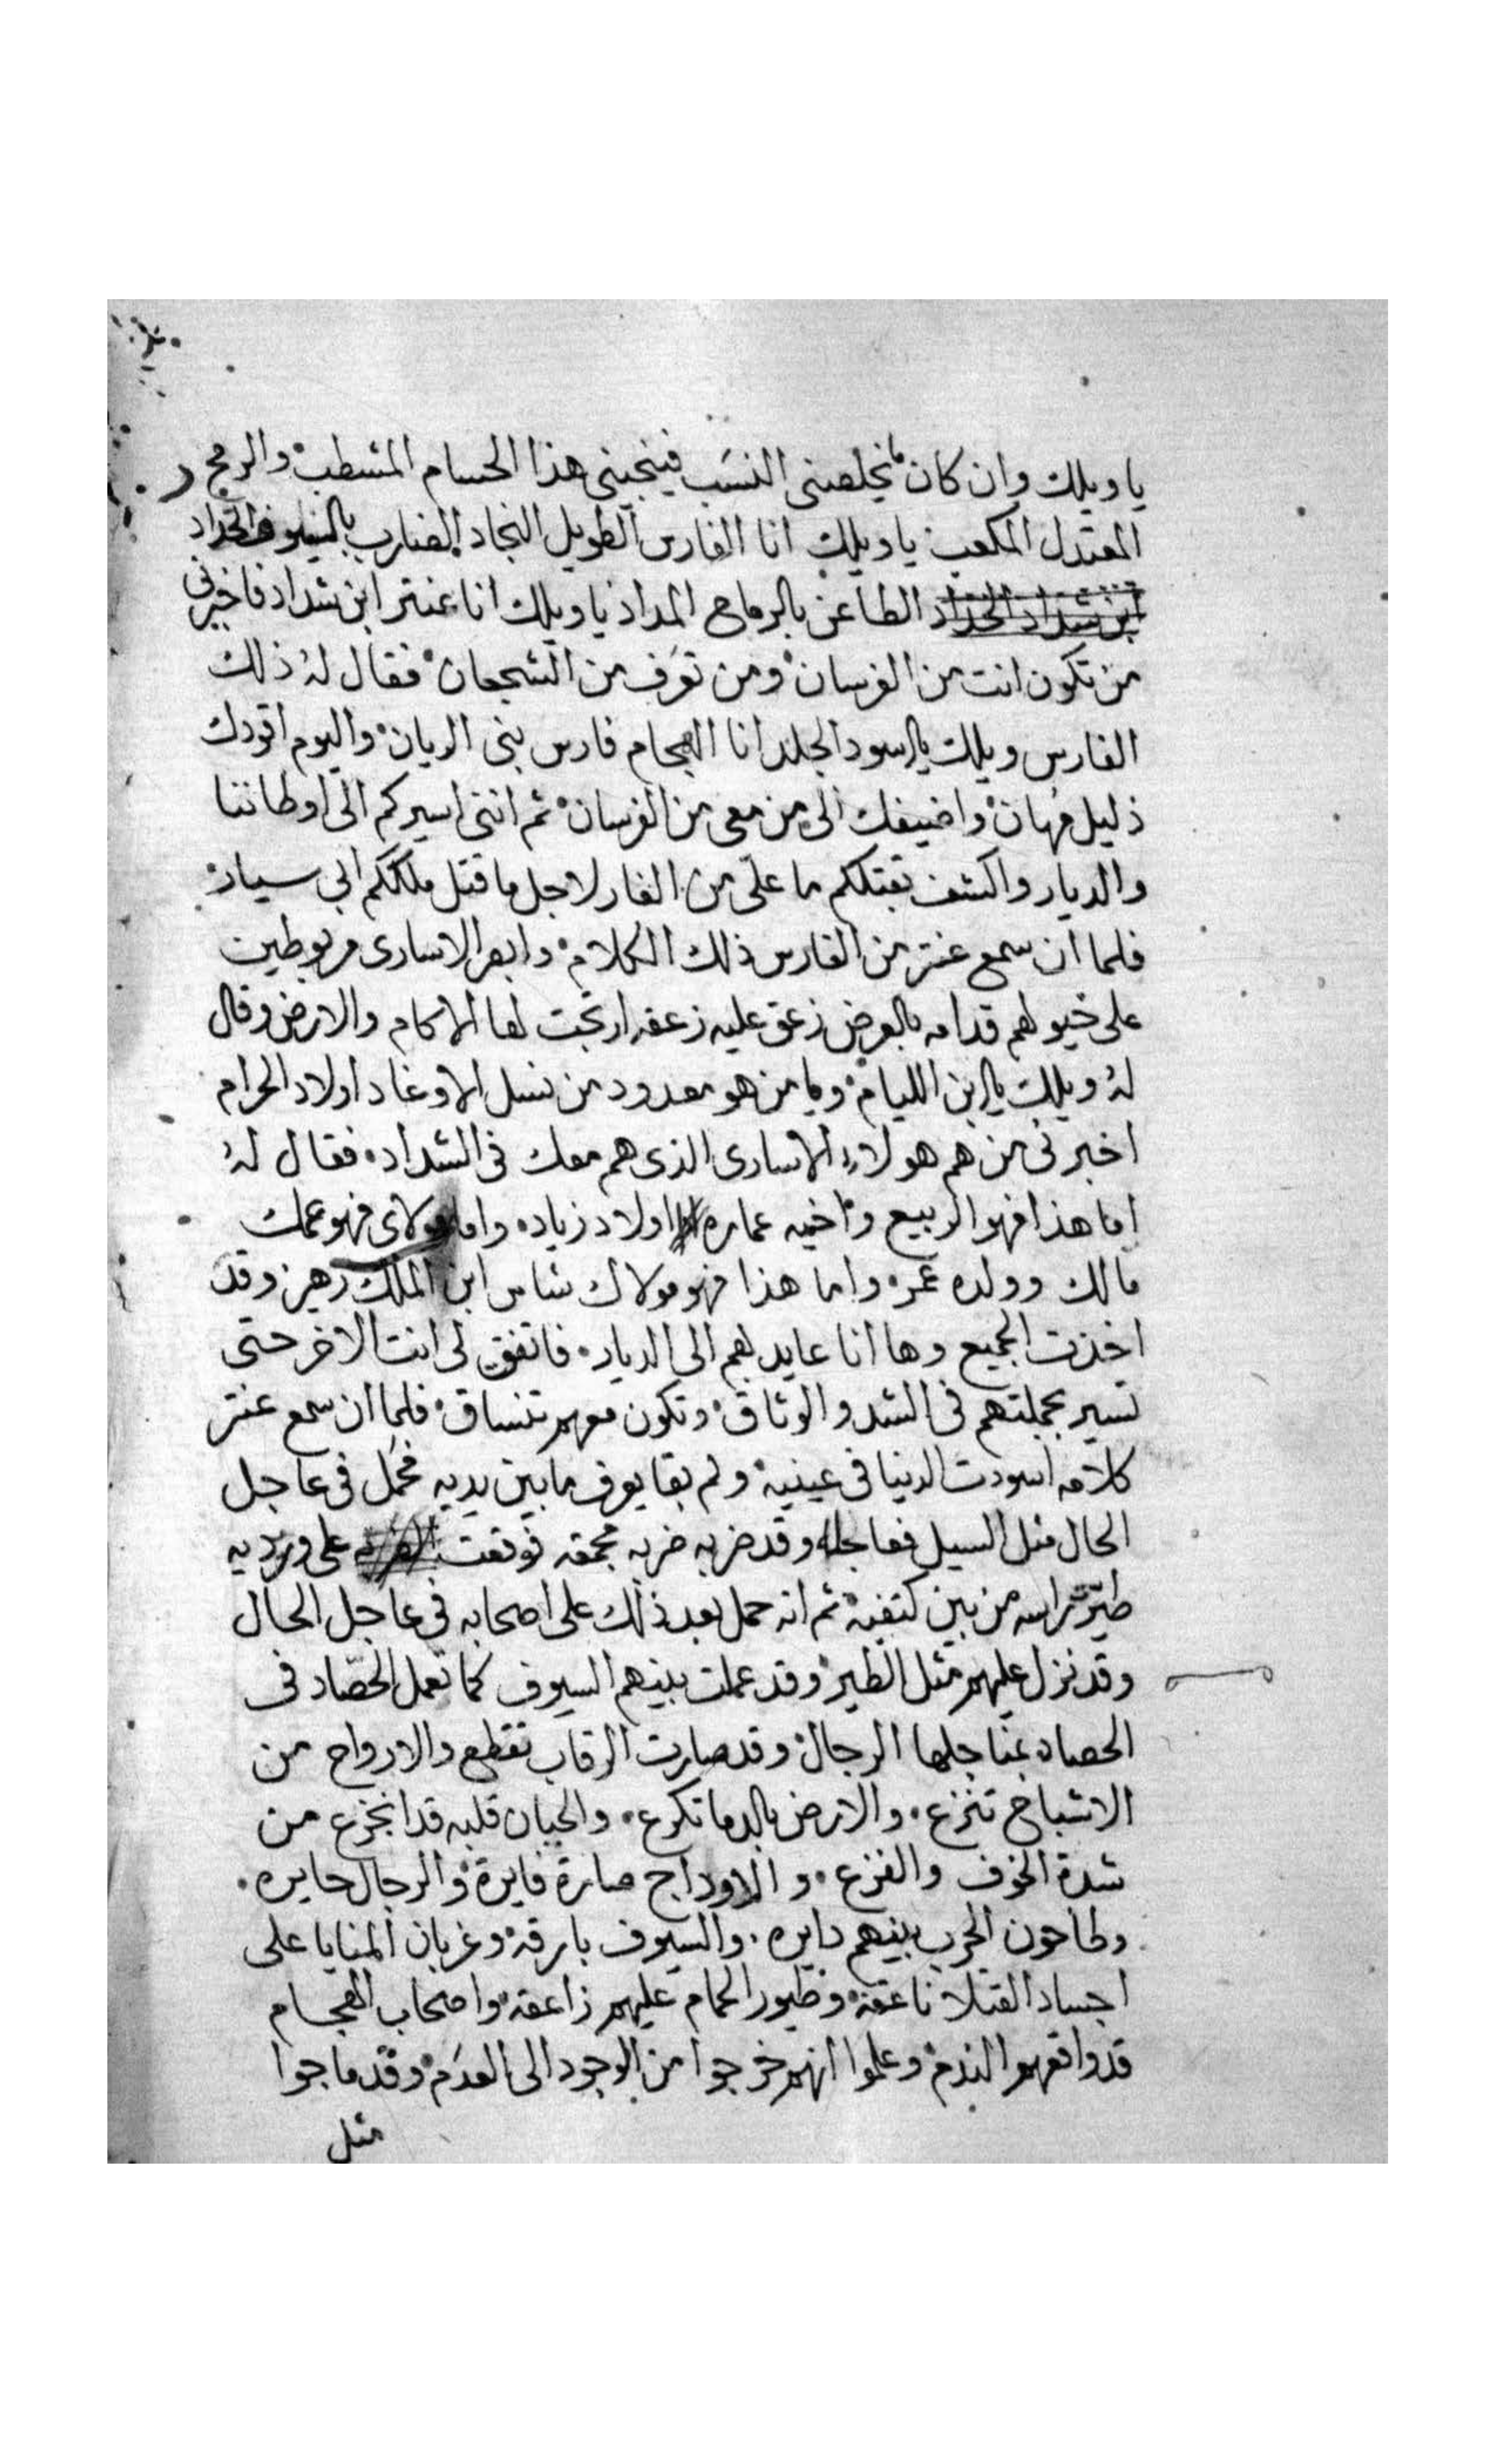 يا ويلك وان كان ما يخلصني النسب فينجيني هذا الحسام المشطب والرمح
المعتدل المكعب يا ويلك انا الفارس الطويل النجاد الضارب بالسيوف الحداد
ابن شداد الحداد الطاعن بالرماح المداد يا ويلك انا عنتر ابن شداد فاخبرني
من تكون انت من الفرسان ومن تعرف من الشجعان فقال له ذلك
الفارس ويلك يا اسود الجلد انا الهجام فارس بني الريان واليوم اقودك
ذليل مهان واضيفك الى من معي من الفرسان ثم انني اسير كم الى اوطاننا
والديار واكشف بقتلكم ما علي من العار لاجل ما قتل ملككم ابي سيار
فلما ان سمع عنتر من الفارس ذلك الكلام وابصر الاسارى مربوطين
على خيولهم قدامه بالعرض زعق عليه زعقه ارتجت لها الاكام والارض وقال
له ويلك يا ابن الليام ويا من هو معدود من نسل الاوغاد اولاد الحرام
اخبرني من هم هولاء الاسارى الذي هم معك في الشداد فقال له
اما هذا فهو الربيع واخيه عماره اولاد زياد واما مولاى فهو عمك
مالك وولده عمر واما هذا فهو مولاك شاس ابن الملك زهير وقد
اخذت الجميع وها انا عايد بهم الى الديار فاتفق لى انت الاخر حتى
تسير بجملتهم في الشد والوثاق وتكون معهم تنساق فلما ان سمع عنتر
كلامه اسودت الدنيا في عينيه ولم بقا يعرف ما بين يديه فحمل في عاجل
الحال مثل السيل فعاجله وقد ضربه ضربه محمقه فوقعت على وريديه
طيرت راسه من بين كتفيه ثم انه حمل بعد ذلك على اصحابه في عاجل الحال
وقد نزل عليهم مثل الطير وقد عملت بينهم السيوف كما تعمل الحصاد في
الحصاد بمناجلها الرجال وقد صارت الرقاب تقطع والارواح من
الاشباح تنزع والارض بالدما تكرع والجبان قلبه قد انخزع من
شدة الخوف والفزع والاوداج صارة فايرة والرجال حايره
وطاحون الحرب بينهم دايره والسيوف بارقة وغربان المنايا على
اجساد القتلا ناعقة وطيور الحمام عليهم زاعقة واصحاب الهجام
قد واقعهم الندم وعلموا انهم خرجوا من الوجود الى العدم وقد ماجوا
مثل